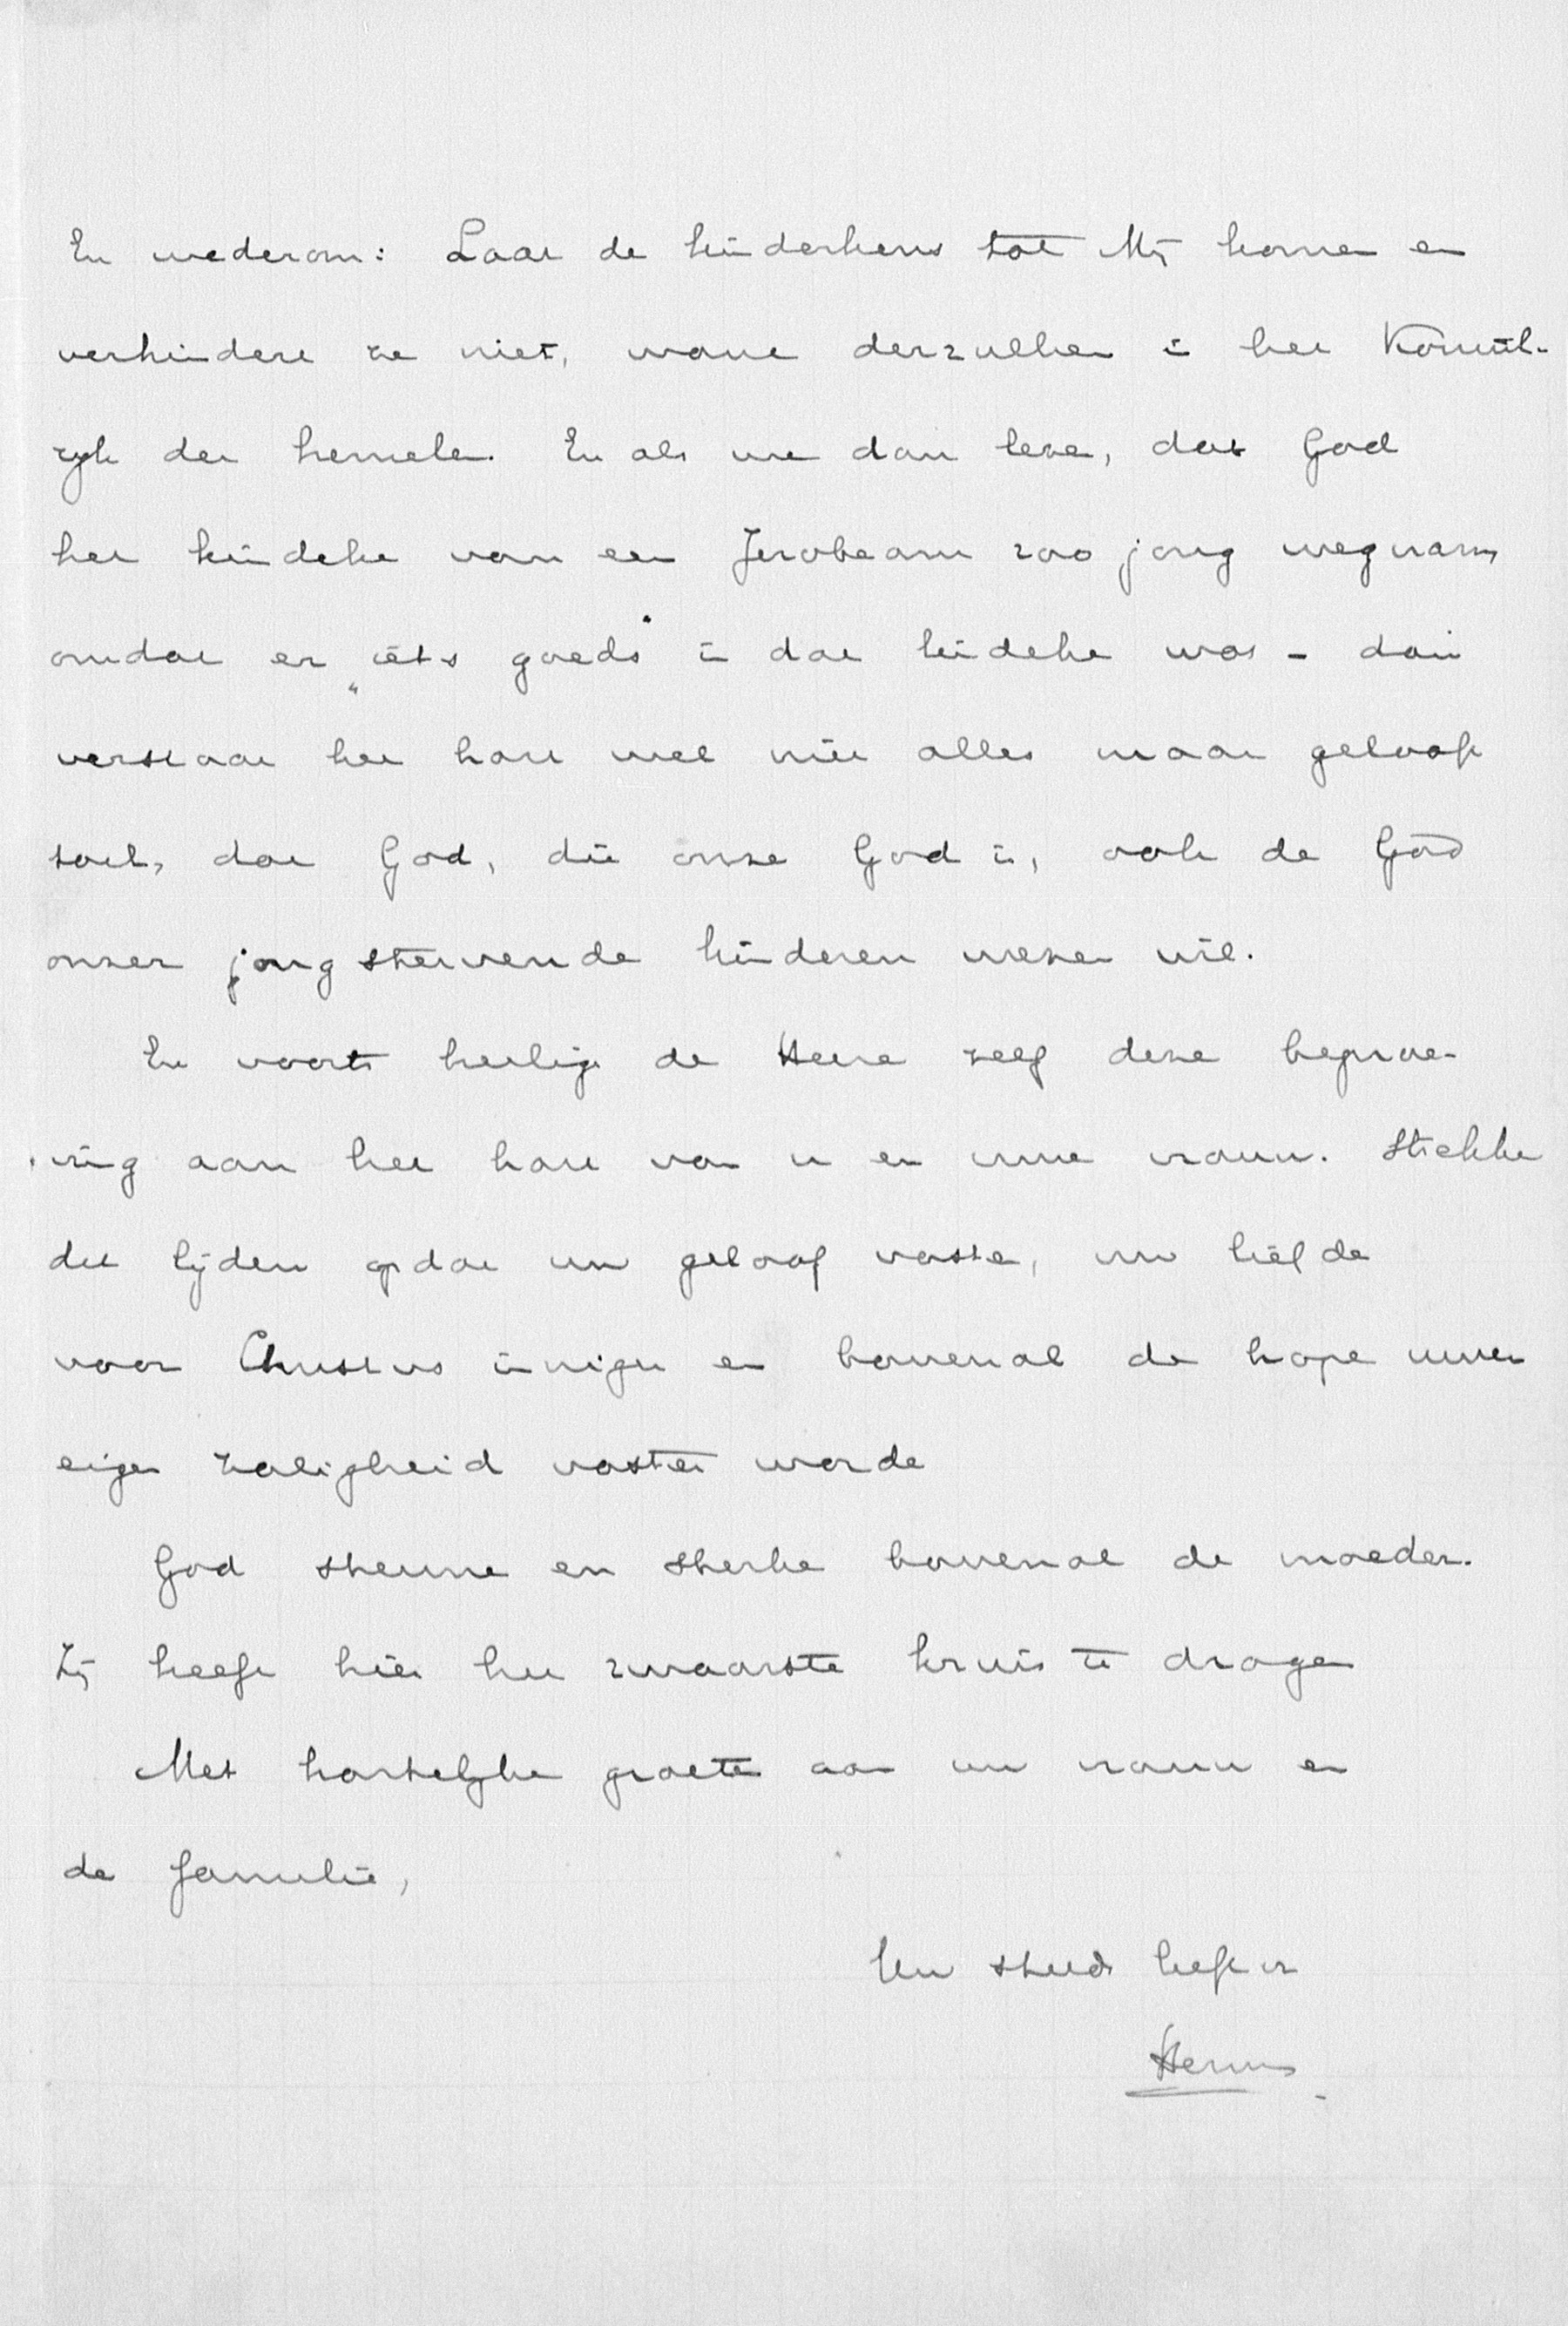 En wederom: Laat de kinderkens tot Mij komen en
verhindert ze niet, want derzulken is het Konink-
rijk der hemelen. En als we dan lezen, dat God
het kindeke van een Jerobeam zoo jong wegnam
omdat er „iets goeds" in dat kindeke was - dan
verstaat het hart wel niet alles maar gelooft
toch, dat God, die onze God is, ook de God
onzer jong stervende kinderen wezen wil.
En voorts heilige de Heere zelf deze beproe-
ving aan het hart van u en uwe vrouw. Strekke
dit lijden opdat uw geloof vaster, uw liefde
voor Christus inniger en bovenal de hope uwer
eigen zaligheid vaster worde
God steune en sterke bovenal de moeder.
Zij heeft hier het zwaarste kruis te dragen
Met hartelijke groeten aan uw vrouw en
de familie,
Uw steeds liefh. vr
Herms